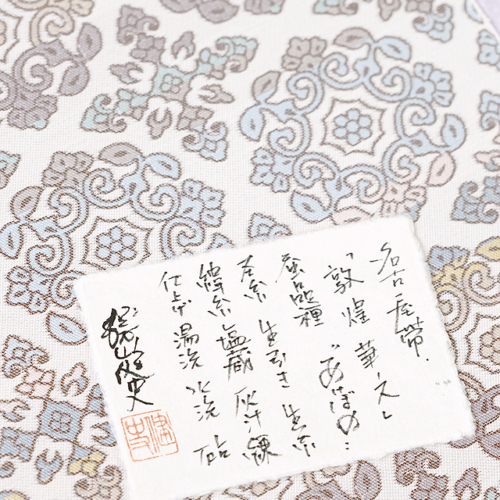 名古屋帯.
「敦煌 華文」
蚕品種 〝あけぼの〟
経糸 生引き 生糸
緯糸 塩蔵 灰汁練
仕上げ 湯洗 水洗 砧